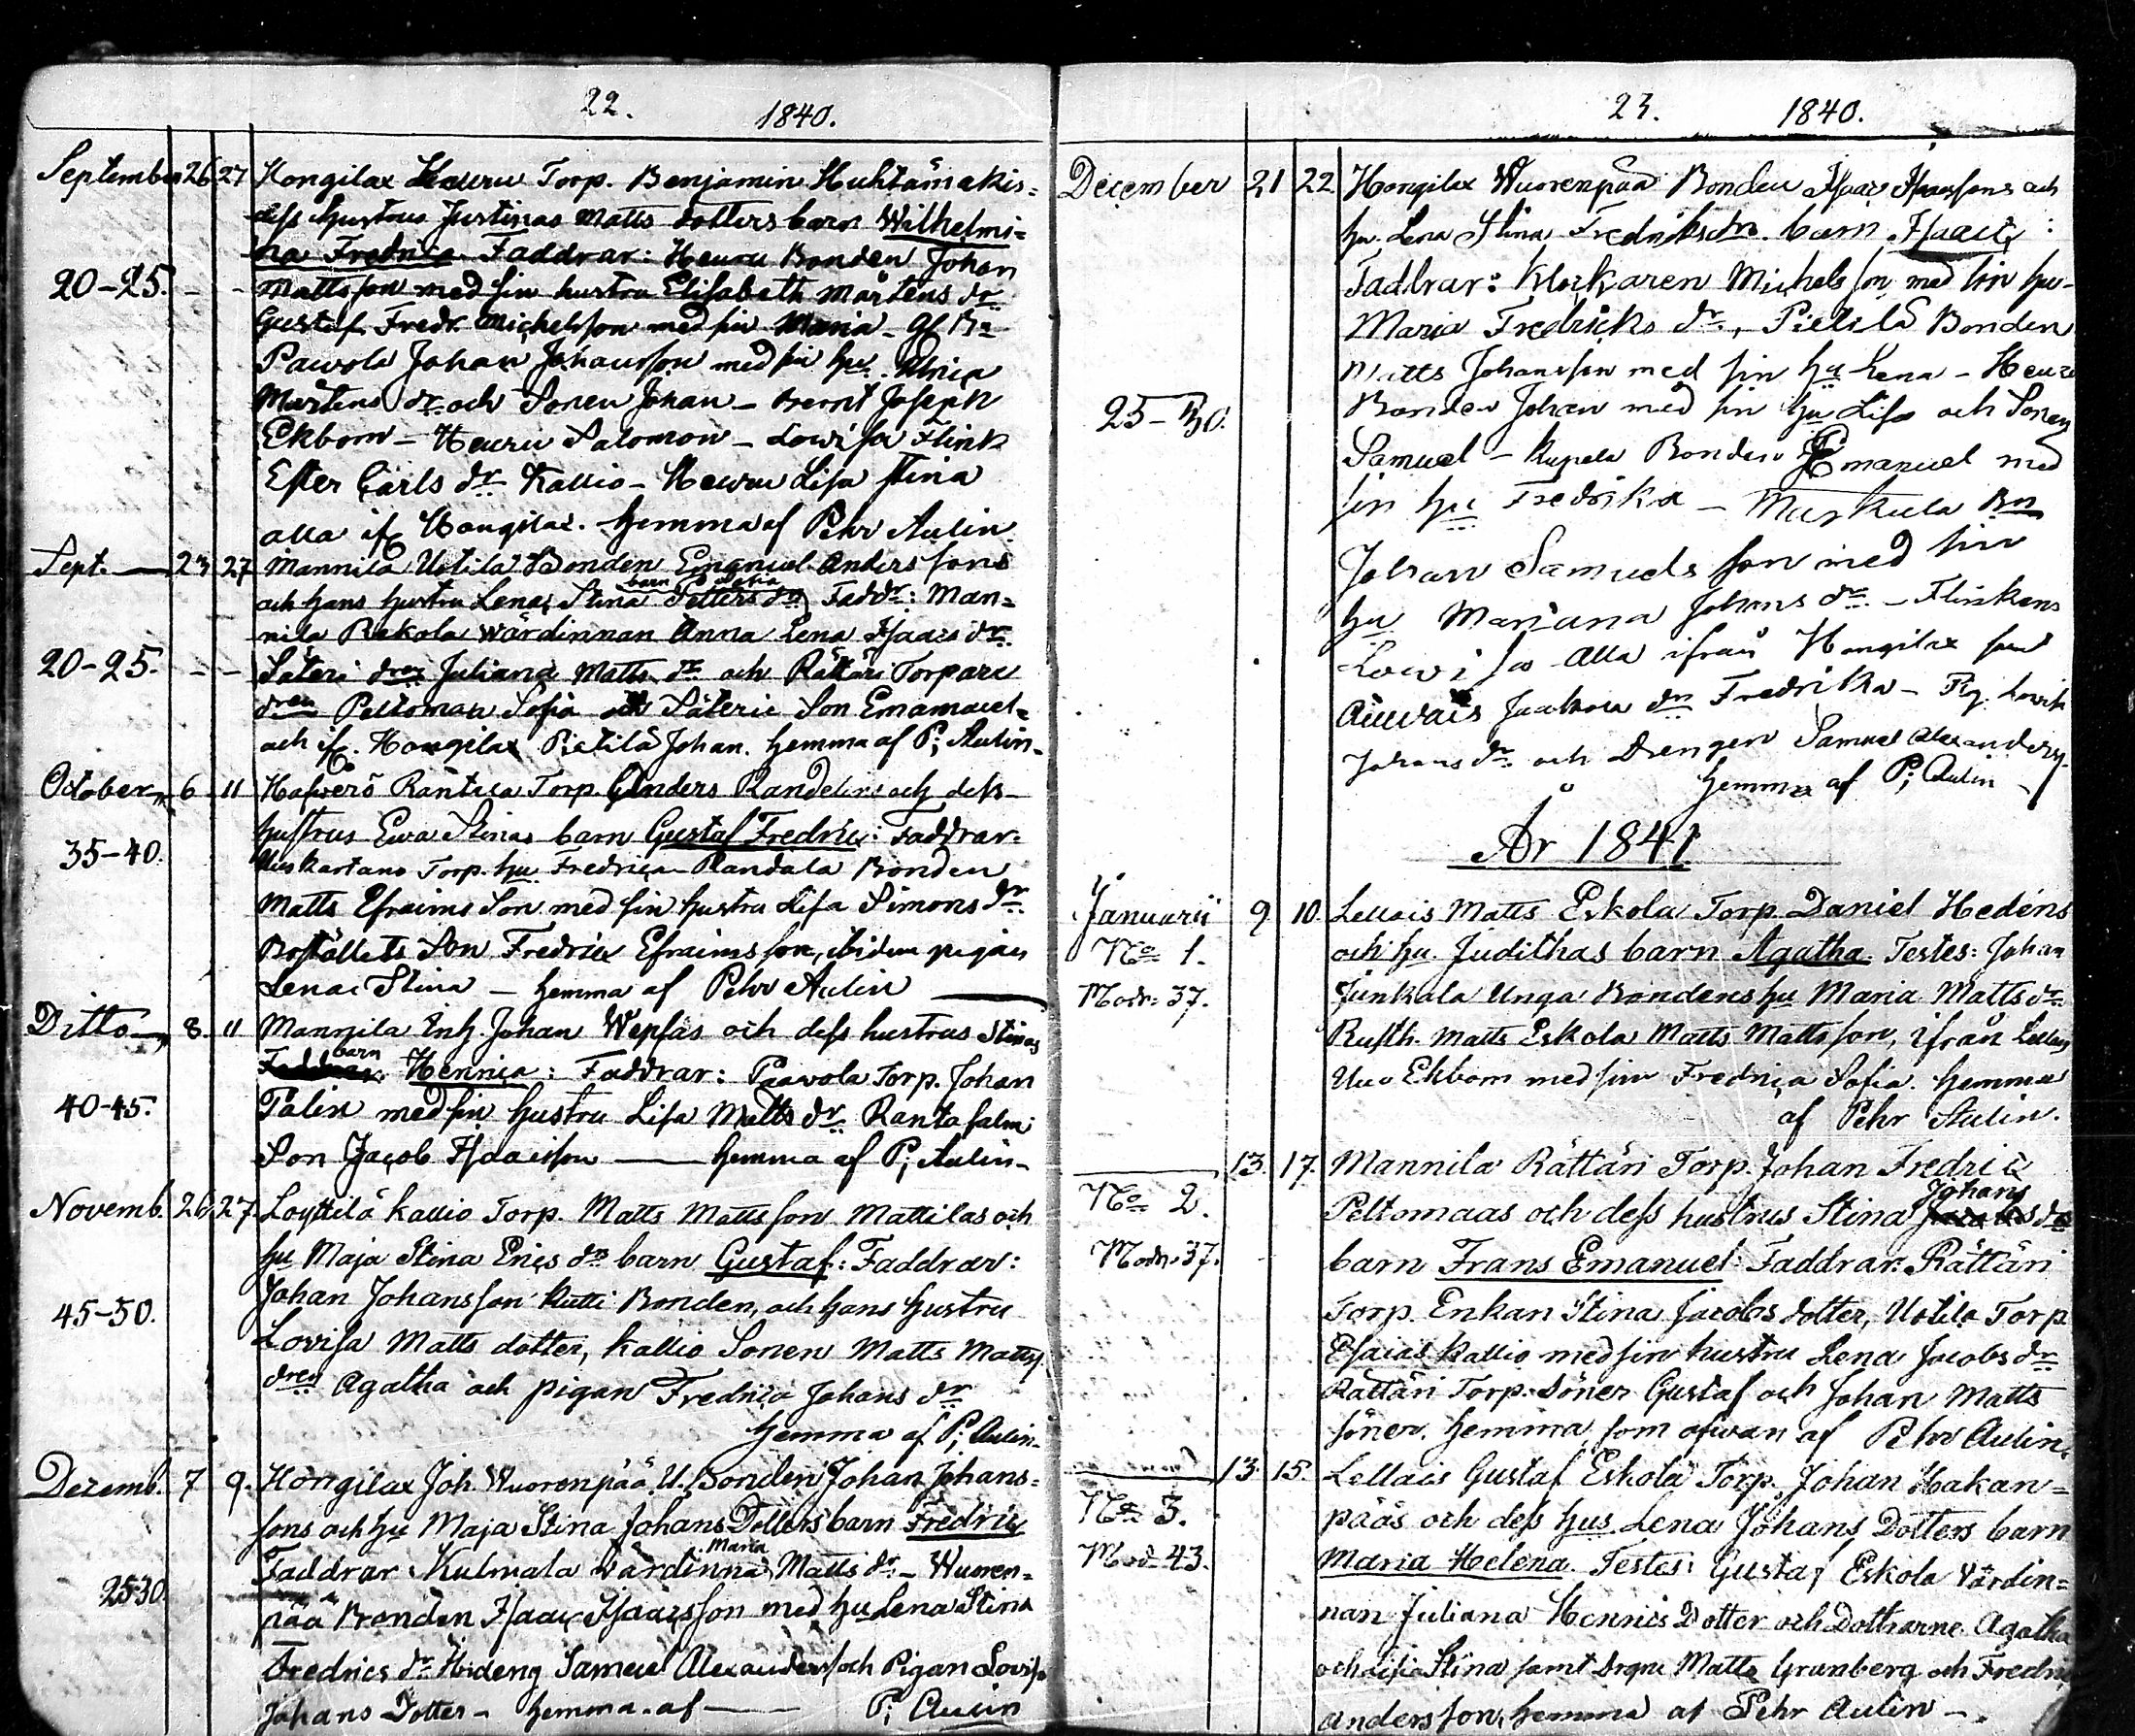 22. 1840.
September 26 27 Hongilax Heuru Torp. Benjamin Huhtamäkis=
dess hustrus Justinas Matts dotters barn Wilhelmi=
na Fredrica Faddrar: Heuru Bonden Johan
20-25. - - Mattsson med sin hustru Elisabeth Mårtens dr
Gustaf Fredr. Michelsson med sin Maria
Pawola Johan Johansson med sin hu Ulrica
Mårtens dr och Sonen Johan - Joseph
Ekbom - Heuru Salomon - Lowisa Flink
Ester Carls dr Kallio - Heuru Lisa Stina
alla if. Hongilax. hemma af Pehr Aulin
Sept. 23 27 Mannila Uotila Bonden Emanuel Anders sons
och hans hustru Lena Stina Petters dr barn Faddr: Man=
nila Rekola Wärdinnan Anna Lena Isaacs dr
20-25. - - Säteri dren Juliana Matts dr och Rättäri Torpare
dren Peltoman Sofia Säteri Son Emanuel
och if. Hongilax Pietilä Johan. hemma af P; Aulin
October 6 11 Hafwerö Rantica Torp. Anders Randelins och dess
hustrus Ewa Stinas barn Gustaf Fredric: Faddrar:
35-40. Uuskartano Torp. hu Fredrica Randala Bonden
Matts Efraims Son med sin hustru Lisa Simons dr
Boställets Son Fredric Efraimsson, ibidem pigan
Lena Stina - hemma af Pehr Aulin
Ditto 8. 11 Mannila Inh. Johan Wepsäs och dess hustrus Stinas
barn Henrica: Faddrar: Paawola Torp. Johan
40-45. Palin med sin hustru Lisa Matts dr Rantasalmi
Son Jacob Isacsson - hemma af P; Aulin
Novemb. 26 27. Löyttilä Kallio Torp. Matts Mattsson Mattilas och
hu Maja Stina Erics dr barn Gustaf: Faddrar:
Johan Johansson Kutti Bonden, och hans hustru
45-50. Lovisa Matts dotter, Kallio Sonen Matts Mattss.
dren Agatha och pigan Fredrica Johans dr
hemma af P; Aulin
Dezemb. 7 9. Hongilax Joh. Wuorenpää U. Bonden Johan Johans=
sons och hu Maja Stina Johans Dotters barn Fredric
Faddrar: Kulmala Wärdinna Maria Matts dr - Wuoren=
25-30 pää Bonden Isaac Isaacsson med hu Lena Stina
Fredrics dr Samuel Alexanderss. och Pigan Lovisa
Johans Dotter - hemma af - P; Aulin
23. 1840.
December 21 22 Hongilax Wuorenpää Bonden Isaac Isaacssons och
hu. Lena Stina Fredriks dr. barn Isaac:
Faddrar: Klockaren Michelsson med sin hu-
Maria Fredricks dr, Pietilä Bonden
Matts Johansson med sin hu Lena - Heuru
25-30. Bonden Johan med sin hu Lisa och Sonen
Samuel - Kupela Bonden Emanuel med
sin hu Fredrika - Markula Bn
Johan Samuels son med sin
hu Mariana Johans dr - Flinkens
Lowisa Alla ifrån Hongilax samt
Auvais Jaakola dn Fredrika - Pig. Lovisa
Johans dr och Drengen Samuel Alexanderss.
hemma af P; Aulin
År 1841
Januarii 9 10. Lellais Matts Eskola Torp. Daniel Hedéns
No 1. och hu. Judithas barn Agatha. Testes: Johan
Modr: 37. Junkala Unga Bondens hu Maria Matts dr
Rusth. Matts Eskola Matts Mattsson, ifrån Lellais
Ekbom med sin Fredrica Sofia. hemma
af Pehr Aulin.
13. 17. Mannila Rättäri Torp. Johan Fredric
No 2. Peltomaas och dess hustrus Stina Johans dr
Modr. 37. barn Frans Emanuel: Faddrar: Rättäri
Torp. Enkan Stina Jacobs dotter, Uotila Torp
Esaias Kallio med sin hustru Lena Jacobs dr
Rättäri Torp. Söner Gustaf och Johan Matts
söner. hemma som ofwan af Pehr Aulin.
13. 15. Lellais Gustaf Eskola Torp. Johan Hakan=
No 3. pääs och dess hus Lena Johans Dotters barn
Mod- 43. Maria Helena. Testes: Gustaf Eskola Wärdin=
nan Juliana Henrics Dotter och Dotterne Agatha
och Stina samt Drgne Matts Granberg och Fredric
Andersson, hemma af Pehr Aulin -